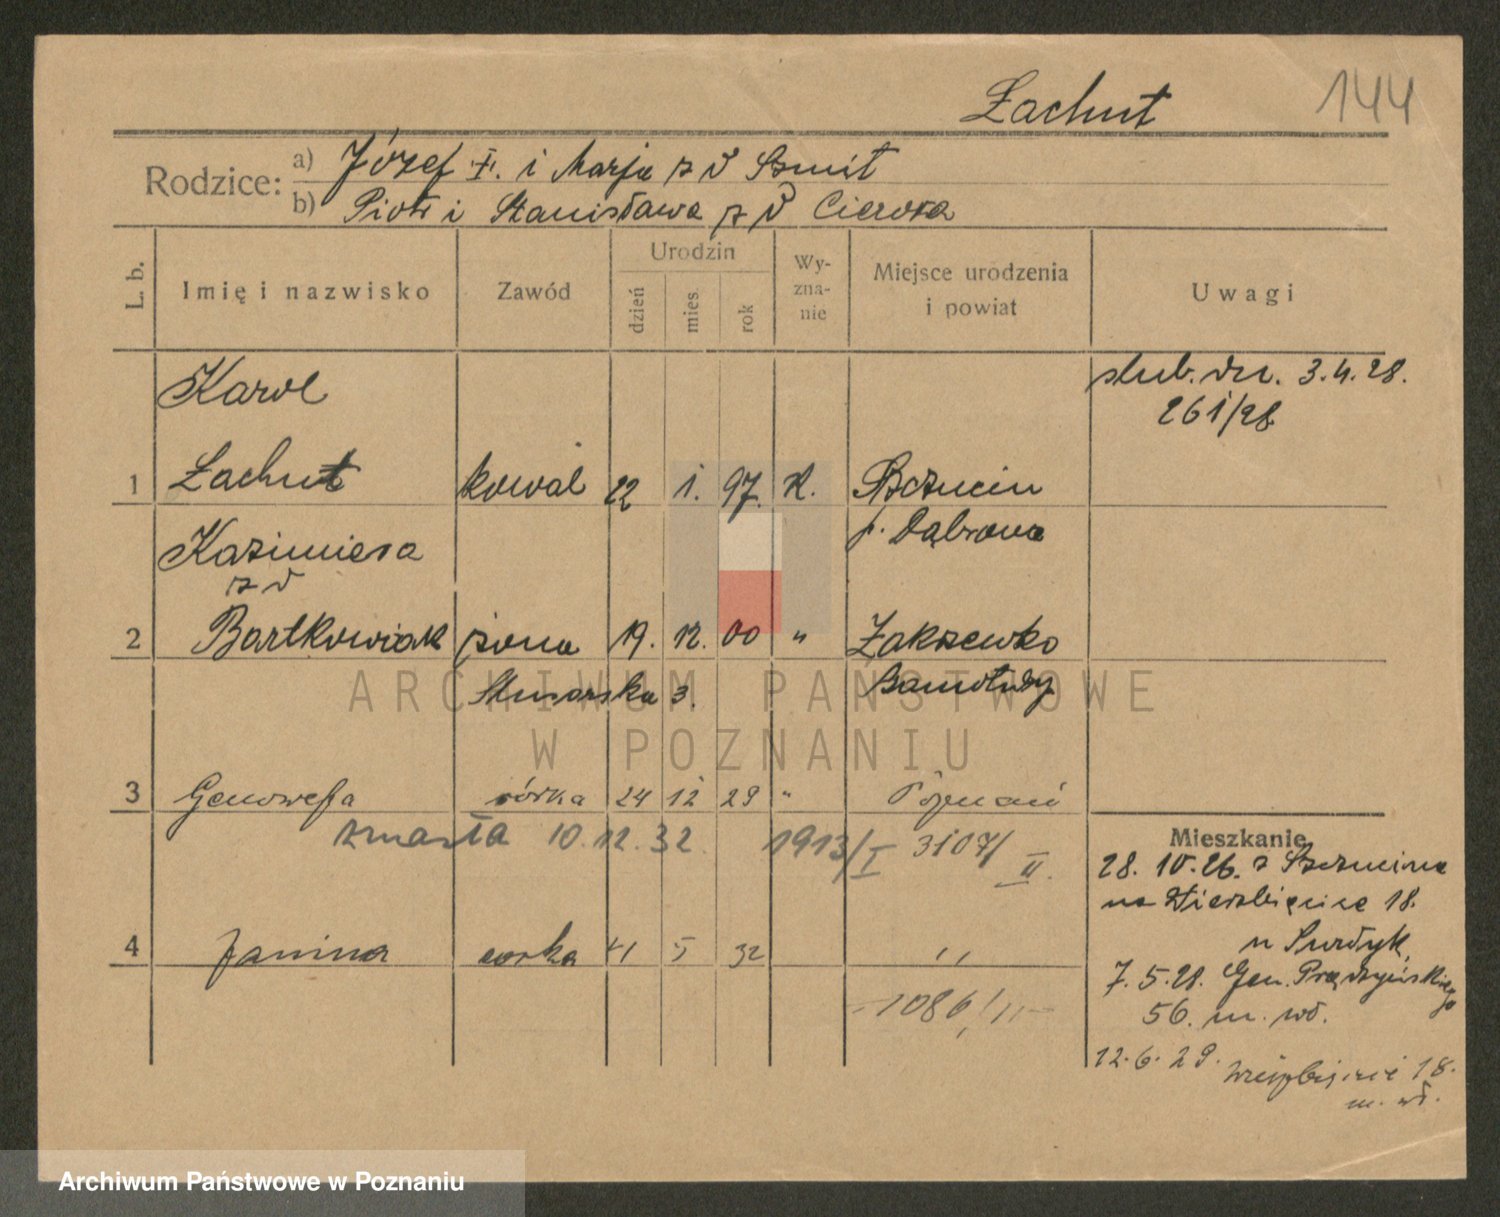 Łachut 144
Rodzice: a) Józef i Marja z d Szmit
b) Piotr i Stanisława z d Cieroka
L. b. Imię i nazwisko Zawód Urodzin dzień mies. rok Wy-zna-nie Miejsce urodzenia i powiat Uwagi
Karol ślub. dn. 3.4.28.
261/28
1 Łachut kowal 22 1. 97. K. Szczucin
Kazimiera p. Dąbrowa
z d
2 Bartkowiak żona 19. 12. 00 " Zakrzewko
3. Szamotuły
ARCHIWUM PAŃSTWOWE
W POZNANIU
3 Genowefa córka 24 12 29 " Poznań
zmarła 10.12.32. 1913/I 3107/II.
Mieszkanie
28. 10. 26. z Szczucina
na Wierzbięcice 18.
4 Janina corka 41 5 32 ,,
7. 5. 28. Gen. Prądzyńskiego
-1086/II-
56. m. wł.
12. 6. 29. Wierzbięcice 18.
m. wł.
Archiwum Państwowe w Poznaniu